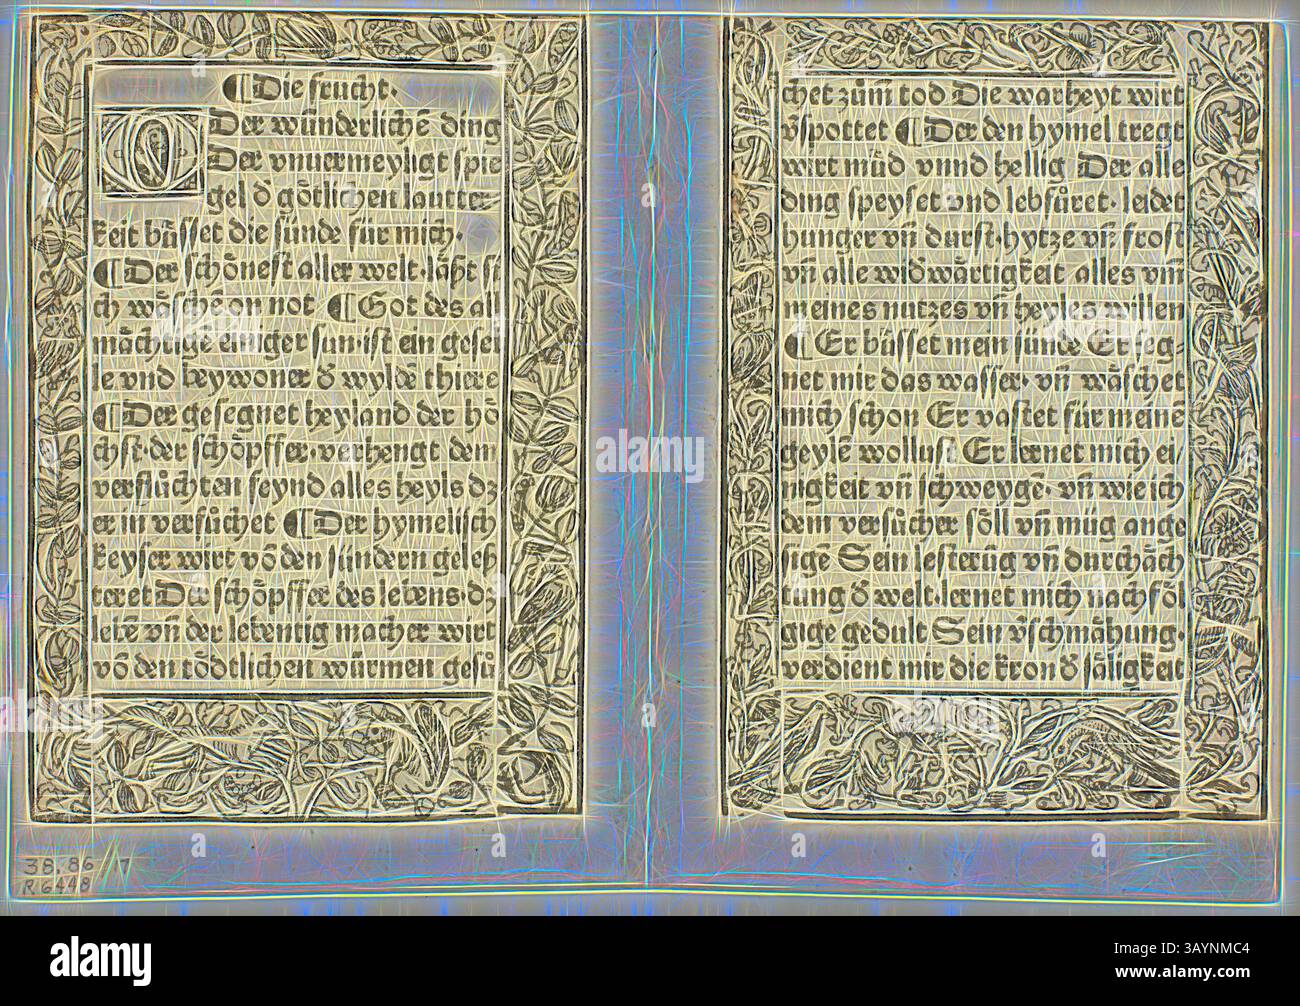 ¶ Die frucht·
O Der wunderlichē ding
Der vnuermeyligt spie
gel d̕ gȯtlichen lautter
keit bu̇sset die sunde fu̇r mich
¶ Der scho̊nest aller welt·laſzt si
ch wåsche on not ¶ Got des all
må̊chtigē einiger sun·ist ein gesel
le vnd beywoner d̕ wyldē thiere
¶ Der gesegnet heyland der hȯ
chst·der schȯpffer·verhengt dem
verflůchten feynd alles heyls dz
er in versůchet ¶ Der hymelisch
keyser wirt vō den su̇ndern geleſt
teret Der schȯpffer des lebens·dz
lebē vn̄ der lebentig macher wirt
vō den tȯdtlichen wu̇rmen gesů
chet zům̄ tod Die warheyt wirt
v̓spottet ¶ Der den hymel tregt
wirt můd vnnd hellig Der alle
ding speyset vnd lebfu̇ret·leidet
hunger vn̄ durst·hytze vn̄ frost
vn̄ alle widwårtigkeit alles vm̄
meines nutzes vn̄ heyles willen
¶ Er bu̇sset mein su̇nde Er seg
net mir das wasser· vn̄ wåschet
mich schon Er vastet fu̇r meine
geylē wollust Er lernet mich ei/
nigkeit vn̄ schweyge· vn̄ wie ich
dem versůcher sȯll vn̄ mu̇g ange
sigē Sein lesterūg vn̄ durchåch
tung d̕ welt·lernet mich nachfȯl
gige gedult Sein v̓schmåhung·
verdient mir die kron d̕ såligkeit
38.86 / 7
R6448
alamy
Image ID: 3AYNMC4
www.alamy.com